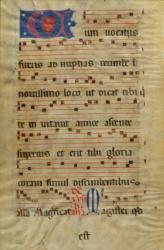 um vocatus
fueris ad nuptias recumbe i
novissimo loco ut dicat tibi q
te in vitavit amice ascende
superius et erit tibi gloria
coram simul discumbentibus
Magnificat Magister q
est